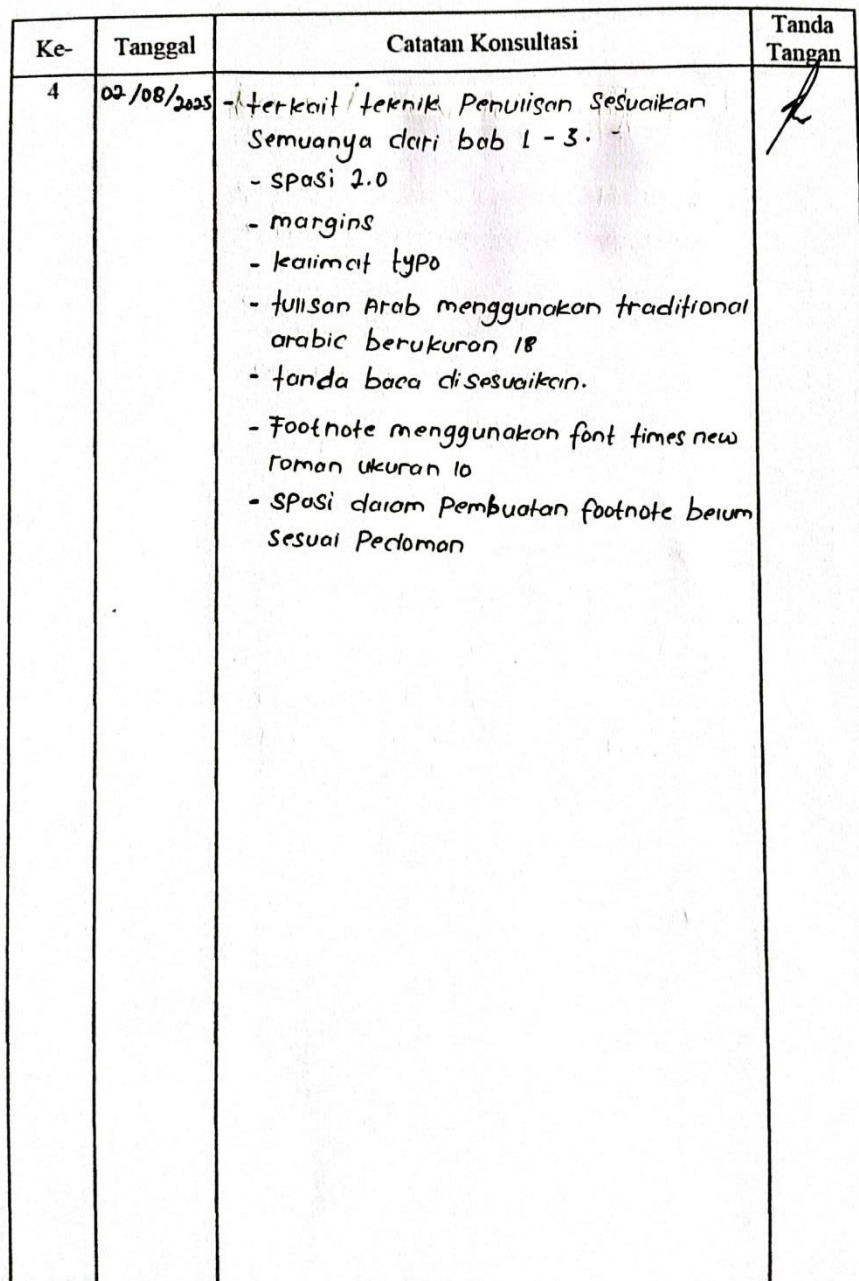 Ke-
Tanggal
Catatan Konsultasi
Tanda
Tangan
4
02/08/2025
- terkait teknik Penulisan Sesuaikan
Semuanya dari bab 1 - 3.
- spasi 2.0
- margins
- kalimat typo
- tulisan Arab menggunakan traditional
arabic berukuran 18
- tanda baca disesuaikan.
- Footnote menggunakan font times new
roman ukuran 10
- spasi dalam Pembuatan footnote belum
sesuai Pedoman